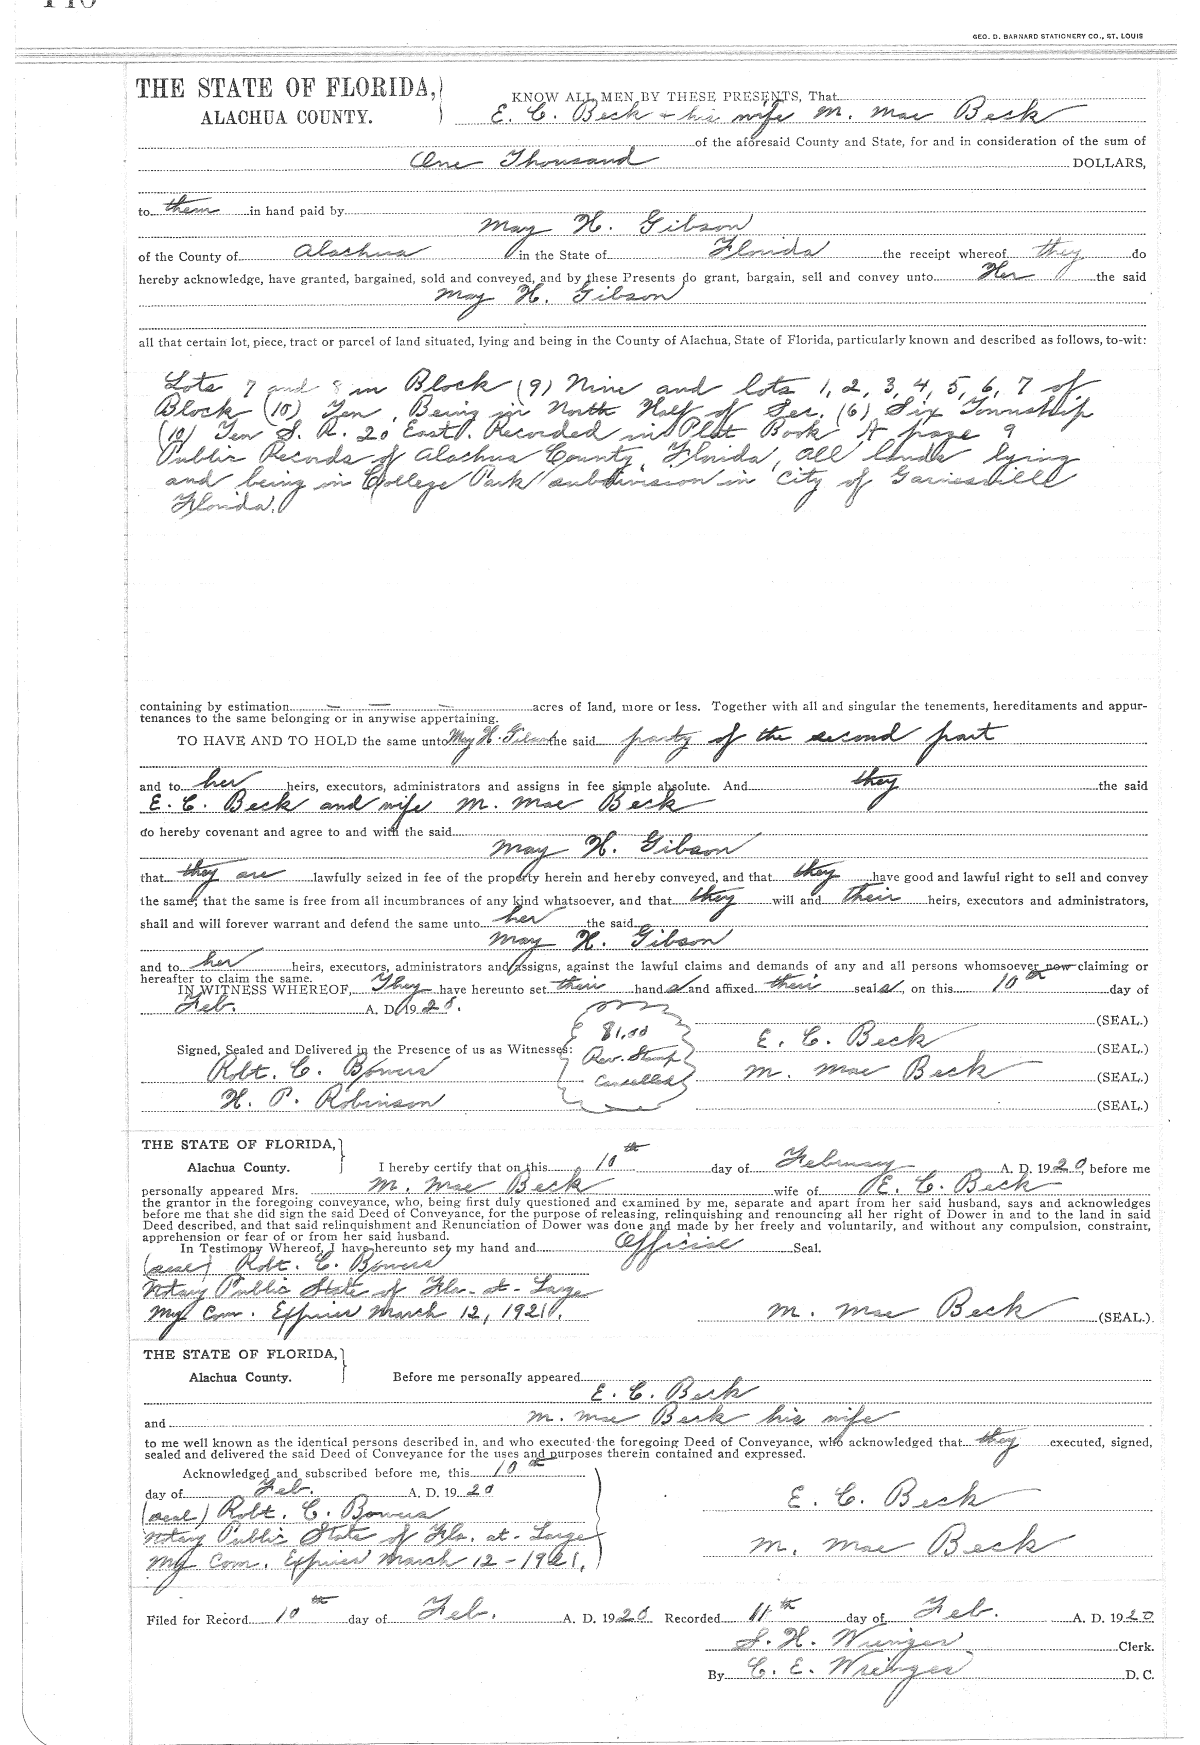 GEO. D. BARNARD STATIONERY CO., ST. LOUIS
THE STATE OF FLORIDA,
ALACHUA COUNTY.
KNOW ALL MEN BY THESE PRESENTS, That
E. C. Beck & his wife M. Mae Beck
of the aforesaid County and State, for and in consideration of the sum of
One Thousand DOLLARS,
to them in hand paid by
May H. Gibson
of the County of Alachua in the State of Florida the receipt whereof they do
hereby acknowledge, have granted, bargained, sold and conveyed, and by these Presents do grant, bargain, sell and convey unto Her the said
May H. Gibson
all that certain lot, piece, tract or parcel of land situated, lying and being in the County of Alachua, State of Florida, particularly known and described as follows, to-wit:
Lots 7 and 8 in Block (9) Nine and lots 1, 2, 3, 4, 5, 6, 7 of
Block (10) Ten, Being in North Half of Sec. (6) Six Township
(10) Ten S. R. 20 East. Recorded in Plat Book A page 9
Public Records of Alachua County, Florida, all lands lying
and being in College Park subdivision in City of Gainesvill
Florida.
containing by estimation — — — acres of land, more or less. Together with all and singular the tenements, hereditaments and appur-
tenances to the same belonging or in anywise appertaining.
TO HAVE AND TO HOLD the same unto May H. Gibson the said party of the second part
and to her heirs, executors, administrators and assigns in fee simple absolute. And they the said
E. C. Beck and wife M. Mae Beck
do hereby covenant and agree to and with the said
May H. Gibson
that they are lawfully seized in fee of the property herein and hereby conveyed, and that they have good and lawful right to sell and convey
the same; that the same is free from all incumbrances of any kind whatsoever, and that they will and their heirs, executors and administrators,
shall and will forever warrant and defend the same unto her the said
May H. Gibson
and to her heirs, executors, administrators and assigns, against the lawful claims and demands of any and all persons whomsoever now claiming or
hereafter to claim the same.
IN WITNESS WHEREOF, They have hereunto set their hand s and affixed their seal s, on this 10th day of
Feb. A. D. 1920.
(SEAL.)
$1.00
Rev. Stamp
Cancelled
E. C. Beck (SEAL.)
Signed, Sealed and Delivered in the Presence of us as Witnesses:
Robt. C. Bowers
M. Mae Beck (SEAL.)
H. P. Robinson
(SEAL.)
THE STATE OF FLORIDA,
Alachua County.
I hereby certify that on this 10th day of February A. D. 1920, before me
personally appeared Mrs. M. Mae Beck wife of E. C. Beck
the grantor in the foregoing conveyance, who, being first duly questioned and examined by me, separate and apart from her said husband, says and acknowledges
before me that she did sign the said Deed of Conveyance, for the purpose of releasing, relinquishing and renouncing all her right of Dower in and to the land in said
Deed described, and that said relinquishment and Renunciation of Dower was done and made by her freely and voluntarily, and without any compulsion, constraint,
apprehension or fear of or from her said husband.
In Testimony Whereof, I have hereunto set my hand and Official Seal.
(seal) Robt. C. Bowers
Notary Public State of Fla. at Large
My Com. Expires March 12, 1921.
M. Mae Beck (SEAL.)
THE STATE OF FLORIDA,
Alachua County.
Before me personally appeared
E. C. Beck
and M. Mae Beck his wife
to me well known as the identical persons described in, and who executed the foregoing Deed of Conveyance, who acknowledged that they executed, signed,
sealed and delivered the said Deed of Conveyance for the uses and purposes therein contained and expressed.
Acknowledged and subscribed before me, this 10th
day of Feb. A. D. 1920
(seal) Robt. C. Bowers
Notary Public State of Fla. at Large
My Com. Expires March 12-1921.
E. C. Beck
M. Mae Beck
Filed for Record 10th day of Feb. A. D. 1920 Recorded 11th day of Feb. A. D. 1920
S. H. Wienges Clerk.
By C. E. Wienges D. C.